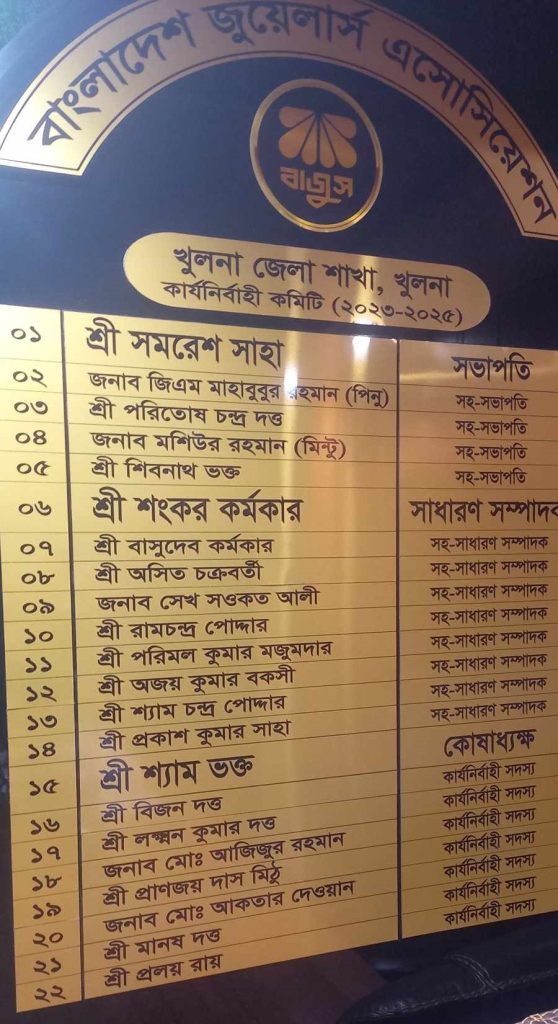 বাংলাদেশ জুয়েলার্স এসোসিয়েশন
বাজুস
খুলনা জেলা শাখা, খুলনা
কার্যনির্বাহী কমিটি (২০২৩-২০২৫)
০১ শ্রী সমরেশ সাহা সভাপতি
০২ জনাব জিএম মাহাবুবুর রহমান (পিনু) সহ-সভাপতি
০৩ শ্রী পরিতোষ চন্দ্র দত্ত সহ-সভাপতি
০৪ জনাব মশিউর রহমান (মিন্টু) সহ-সভাপতি
০৫ শ্রী শিবনাথ ভক্ত সহ-সভাপতি
০৬ শ্রী শংকর কর্মকার সাধারণ সম্পাদক
০৭ শ্রী বাসুদেব কর্মকার সহ-সাধারণ সম্পাদক
০৮ শ্রী অসিত চক্রবর্তী সহ-সাধারণ সম্পাদক
০৯ জনাব সেখ সওকত আলী সহ-সাধারণ সম্পাদক
১০ শ্রী রামচন্দ্র পোদ্দার সহ-সাধারণ সম্পাদক
১১ শ্রী পরিমল কুমার মজুমদার সহ-সাধারণ সম্পাদক
১২ শ্রী অজয় কুমার বকসী সহ-সাধারণ সম্পাদক
১৩ শ্রী শ্যাম চন্দ্র পোদ্দার সহ-সাধারণ সম্পাদক
১৪ শ্রী প্রকাশ কুমার সাহা সহ-সাধারণ সম্পাদক
১৫ শ্রী শ্যাম ভক্ত কোষাধ্যক্ষ
১৬ শ্রী বিজন দত্ত কার্যনির্বাহী সদস্য
১৭ শ্রী লক্ষ্মন কুমার দত্ত কার্যনির্বাহী সদস্য
১৮ জনাব মোঃ আজিজুর রহমান কার্যনির্বাহী সদস্য
১৯ শ্রী প্রাণজয় দাস মিঠু কার্যনির্বাহী সদস্য
২০ জনাব মোঃ আকতার দেওয়ান কার্যনির্বাহী সদস্য
২১ শ্রী মানষ দত্ত কার্যনির্বাহী সদস্য
২২ শ্রী প্রলয় রায় কার্যনির্বাহী সদস্য